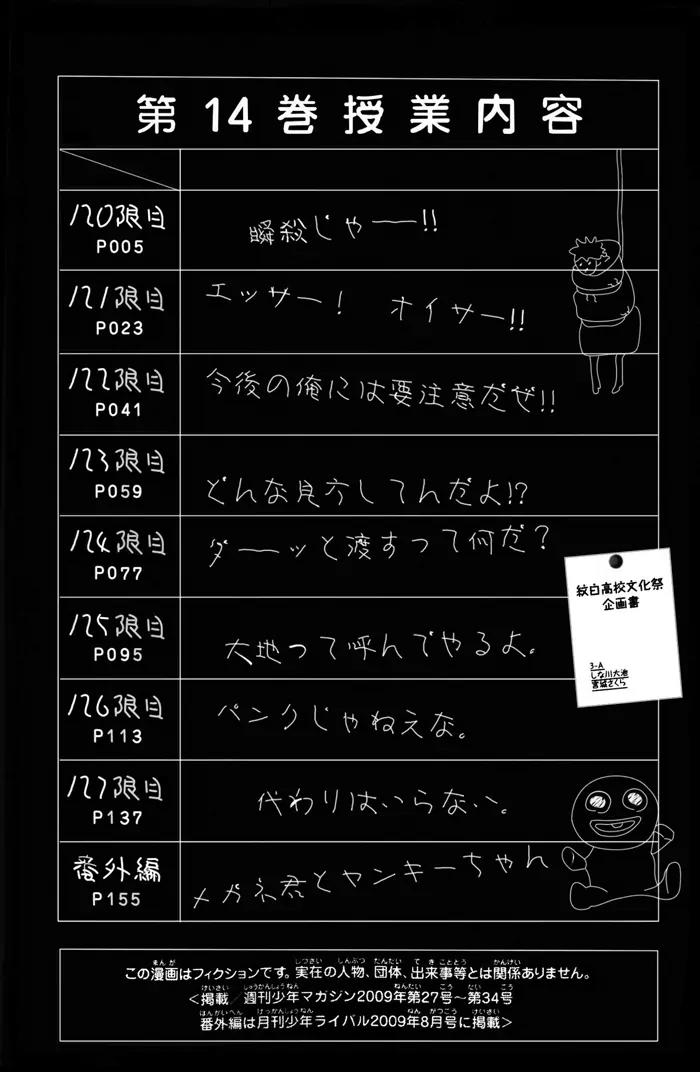 第14巻授業内容
120限目
P005
瞬殺じゃーー!!
121限目
P023
エッサー! オイサー!!
122限目
P041
今後の俺には要注意だぜ!!
123限目
P059
どんな見方してんだよ!?
124限目
P077
ダーーッと渡すって何だ?
125限目
P095
大地って呼んでやるよ。
126限目
P113
パンクじゃねえな。
127限目
P137
代わりはいらない。
番外編
P155
メガネ君とヤンキーちゃん
紋白高校文化祭
企画書
3-A
しな川大地
宮城さくら
この漫画はフィクションです。実在の人物、団体、出来事等とは関係ありません。
<掲載/週刊少年マガジン2009年第27号〜第34号
番外編は月刊少年ライバル2009年8月号に掲載>